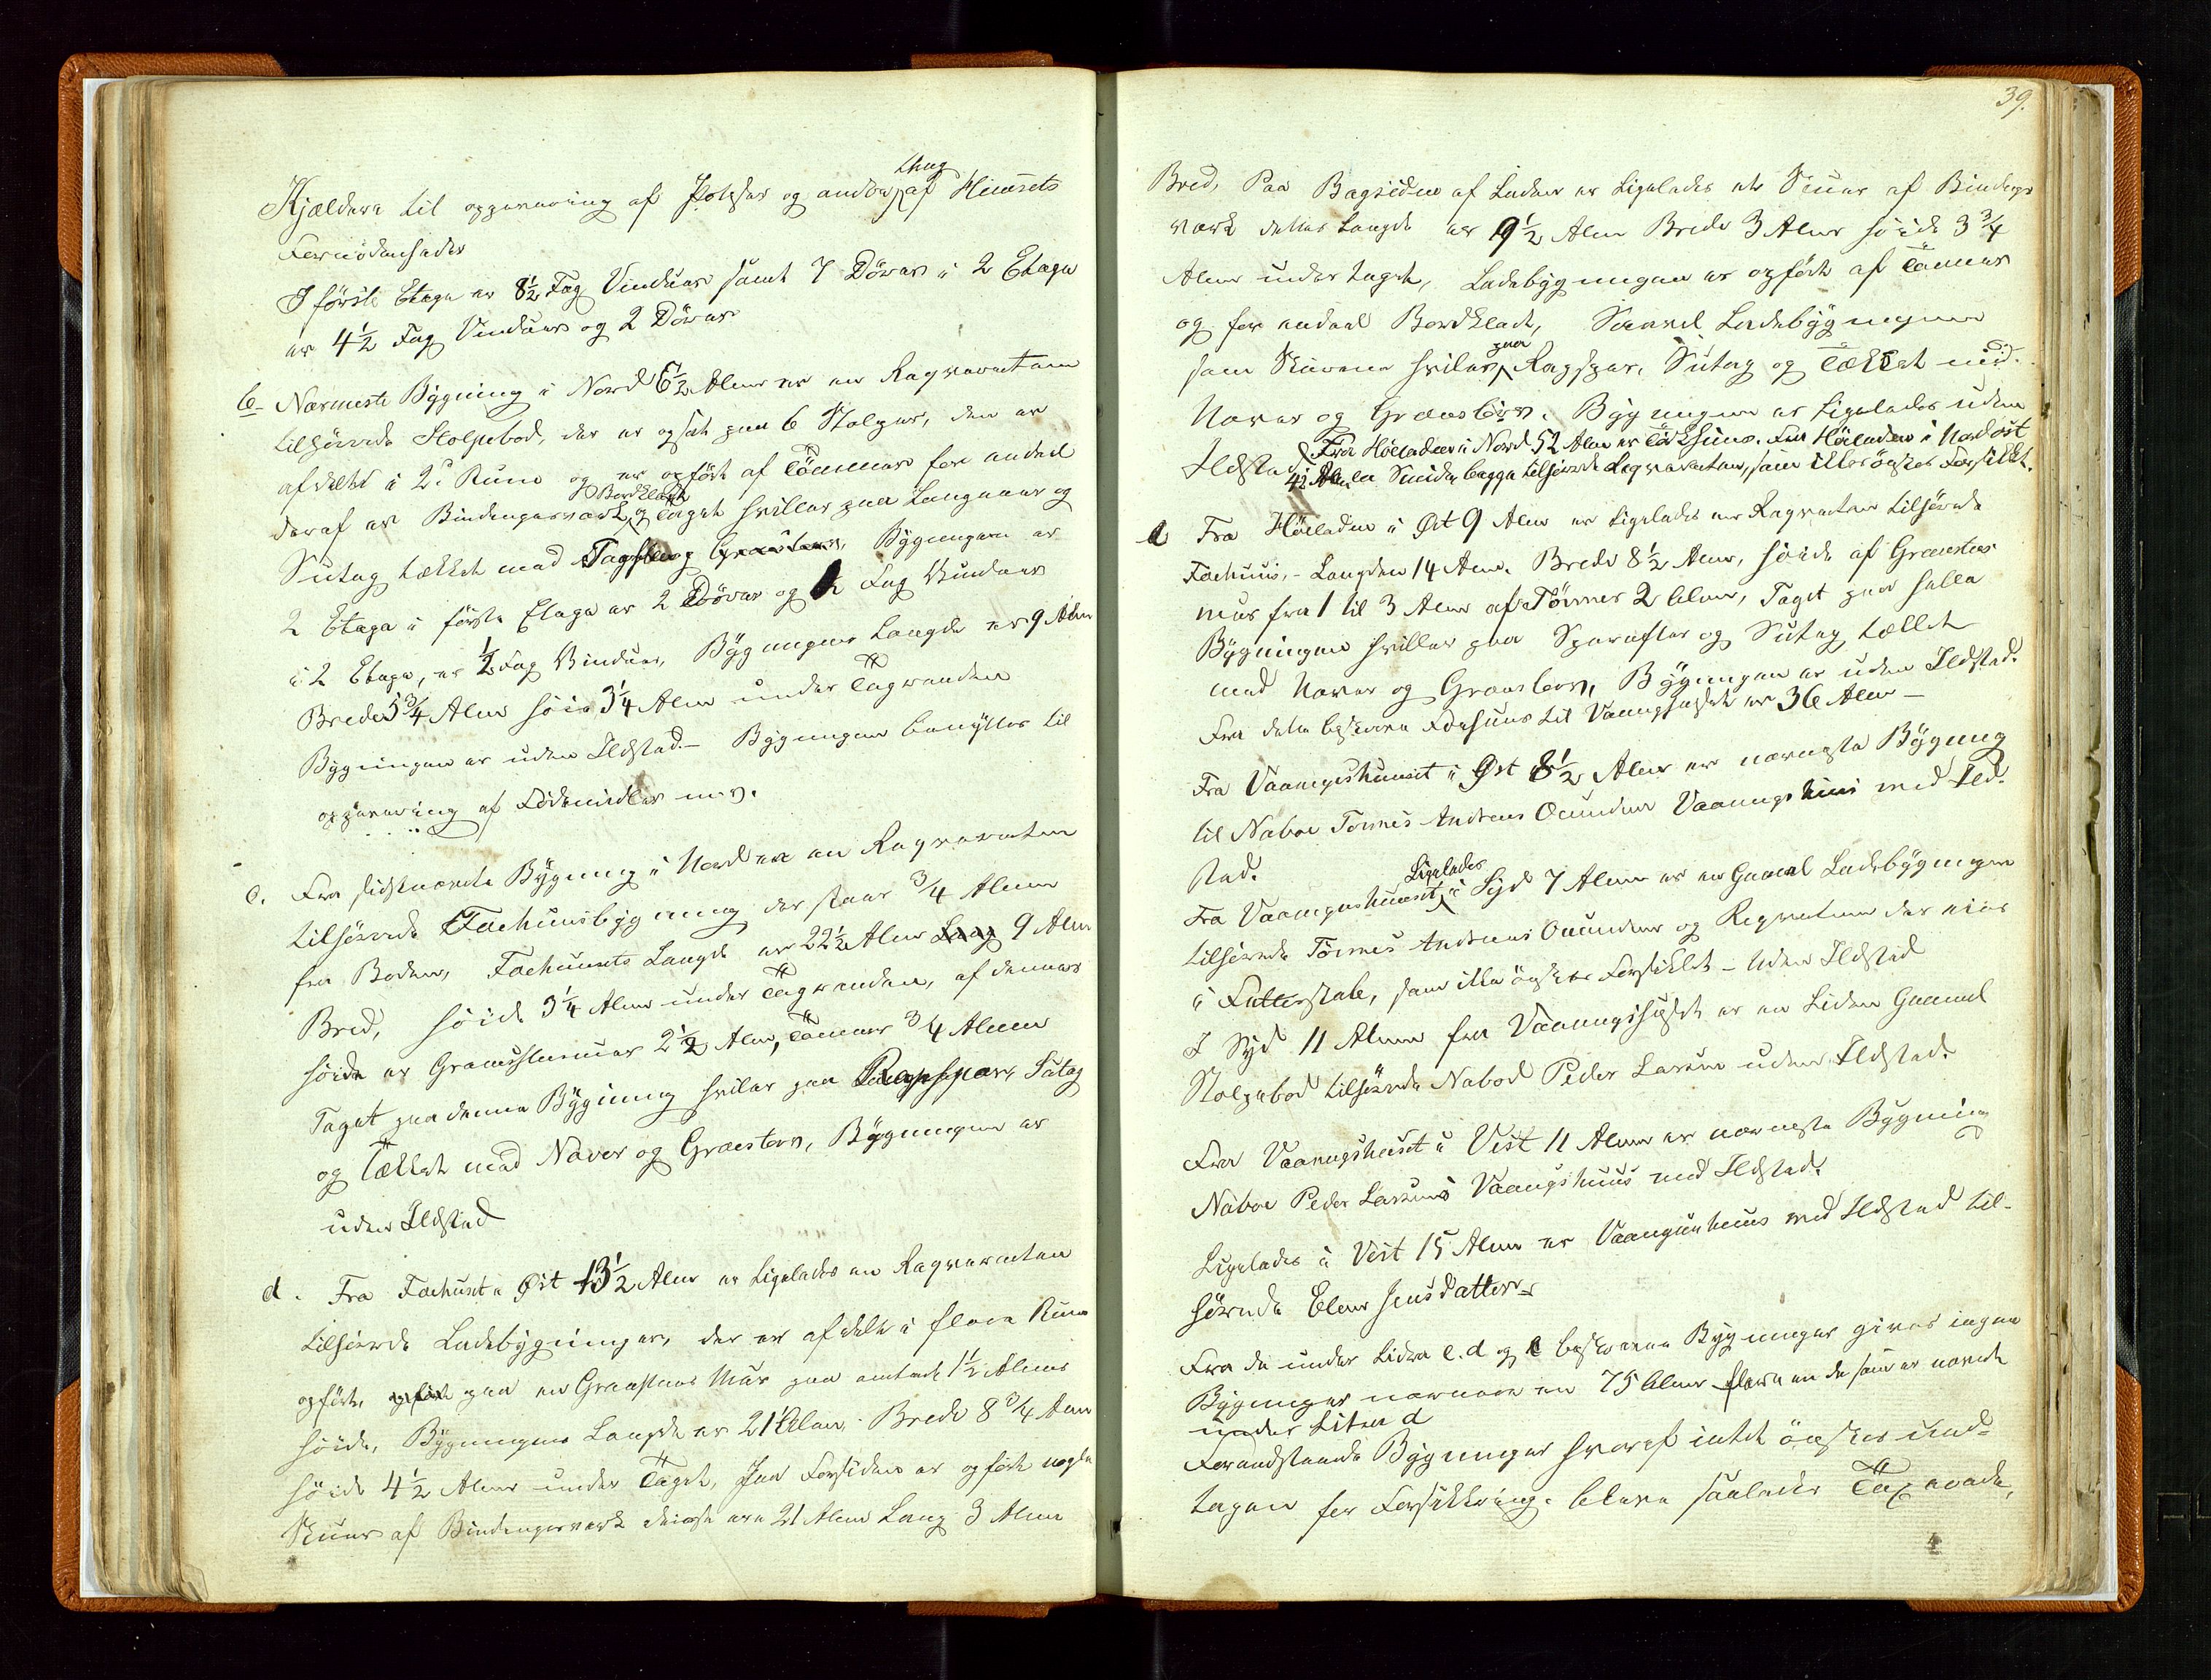 Kjældere til oppevaring af Potester og andre ting af Huusets
Fornødenheder
I første Etage er 8½ Fag Vinduer samt 7 Dörer i 2 Etage
er 4½ Fag Vinduer og 2 Dörer
b- Nærmeste Bygning i Nord 6½ Alen er en Reqverenten
tilhørende Stolpebod, der er opsat paa 6 Stolper, den er
afdelt i 2de Rum og er opført af Tömmer for endeel
deraf er Bindingsværk og Bordklædt Taget hviler paa Langaaser og
Sutag tækket med Tagsteen, Bygningen er
2 Etage i første Etage er 2 Dörer og ½ Fag Vinduer
i 2 Etage, er ½ Fag Vinduer, Bygningens Længde er 9 Alen
Brede 5¾ Alen höi 3¼ Alen under Tagranden
Bygningen er uden Ildsted.- Bygningen benyttes til
oppevaring af Födemidler m.v.
c. Fra sidstnævnte Bygning i Nord er en Reqverenten
tilhørende Föehuusbygning der staar ¾ Alen
fra Boden, Föehuusets Længde er 22½ Alen 9 Alen
Bred, höide 3¼ Alen under Tagranden, af dennes
höide er Graasteensmuur 2½ Alen, Tömmer ¾ Alen
Taget paa denne Bygning hviler paa Ragsper, Sutag
og Tækket med Næver og Græstorv, Bygningen er
uden Ildsted
d. Fra Föehuset i Øst 13½ Alen er ligeledes en Reqverenten
tilhørende Ladebygninger, der er afdelt i flere Rum
opført paa en Graasteens Muur paa omtrent 1½ Alens
höide, Bygningens Længde er 21 Alen, Brede 8¾ Alen
höide 4½ Alen under Taget, Paa Forsiden er opført nogle
Skuur af Bindingsværk disse ere 21 Alen Lang 3 Alen
39.
Bred, Paa Bagsiden af Laden er Ligeledes et Skuur af Bindings
værk dettes Længde er 9½ Alen Brede 3 Alen höide 3¾
Alen under taget, Ladebygningen er opført af Tömmer
og for endeel Bordklædt, Saavel Ladebygningen
som Skurene hviler paa Ragsper, Sutag og Tækket med
Næver og Græstörv. Bygningen er ligeledes uden
Ildsted Fra Höeladen i Nord 52 Alen er Törkehuus. Fra Höeladen i Nordöst
42 Alen en Smidie begge tilhørende Reqverenten, som ikke önskes Forsikkret.
e Fra Höeladen i Øst 9 Alen er ligeledes en Reqverenten tilhörende
Föehuus,- Længden 14 Alen. Brede 8½ Alen, höide af Graasteens
muur fra 1 til 3 Alen af Tömmer 2 Alen, Taget paa selve
Bygningen hviler paa Sperrefter og Sutag tækket
med Næver og Græstörv, Bygningen er uden Ildsted.
Fra dette beskrevne Föehuus til Vaaningshuset er 36 Alen-
Fra Vaaningshuuset i Øst 8½ Alen er nærmeste Bygning
til Naboe Tönnes Andreas Omundsen Vaaningshuus med Ild-
sted.
Fra Vaaningshuuset Ligeledes i Syd 7 Alen er en Gammel Ladebygningen
tilhørende Tönnes Andreas Omundsen og Reqverenten der eies
i Fællesskab, som ikke önskes Forsikkret - Uden Ildsted
I Syd 11 Alen fra Vaaningshuset er en Liden Gammel
Stolpebod tilhörende Naboe Peder Larsen uden Ildsted.
Fra Vaaningshuset i Vest 11 Alen er nærmeste Bygning
Naboe Peder Larsens Vaaningshuus med Ildsted.
Ligeledes i Vest 15 Alen er Vaaningenhuus med Ildsted til-
hørende Elen Jensdatter.
Fra de under Litra c. d og e beskrevne Bygninger gives ingen
Bygninger nærmere en 75 Alen flere en de som er nævnt
under Litra d
Foranstaaende Bygninger hvoraf intet önskes und-
tagen for Forsikkring. bleve saaledes Taxerede,